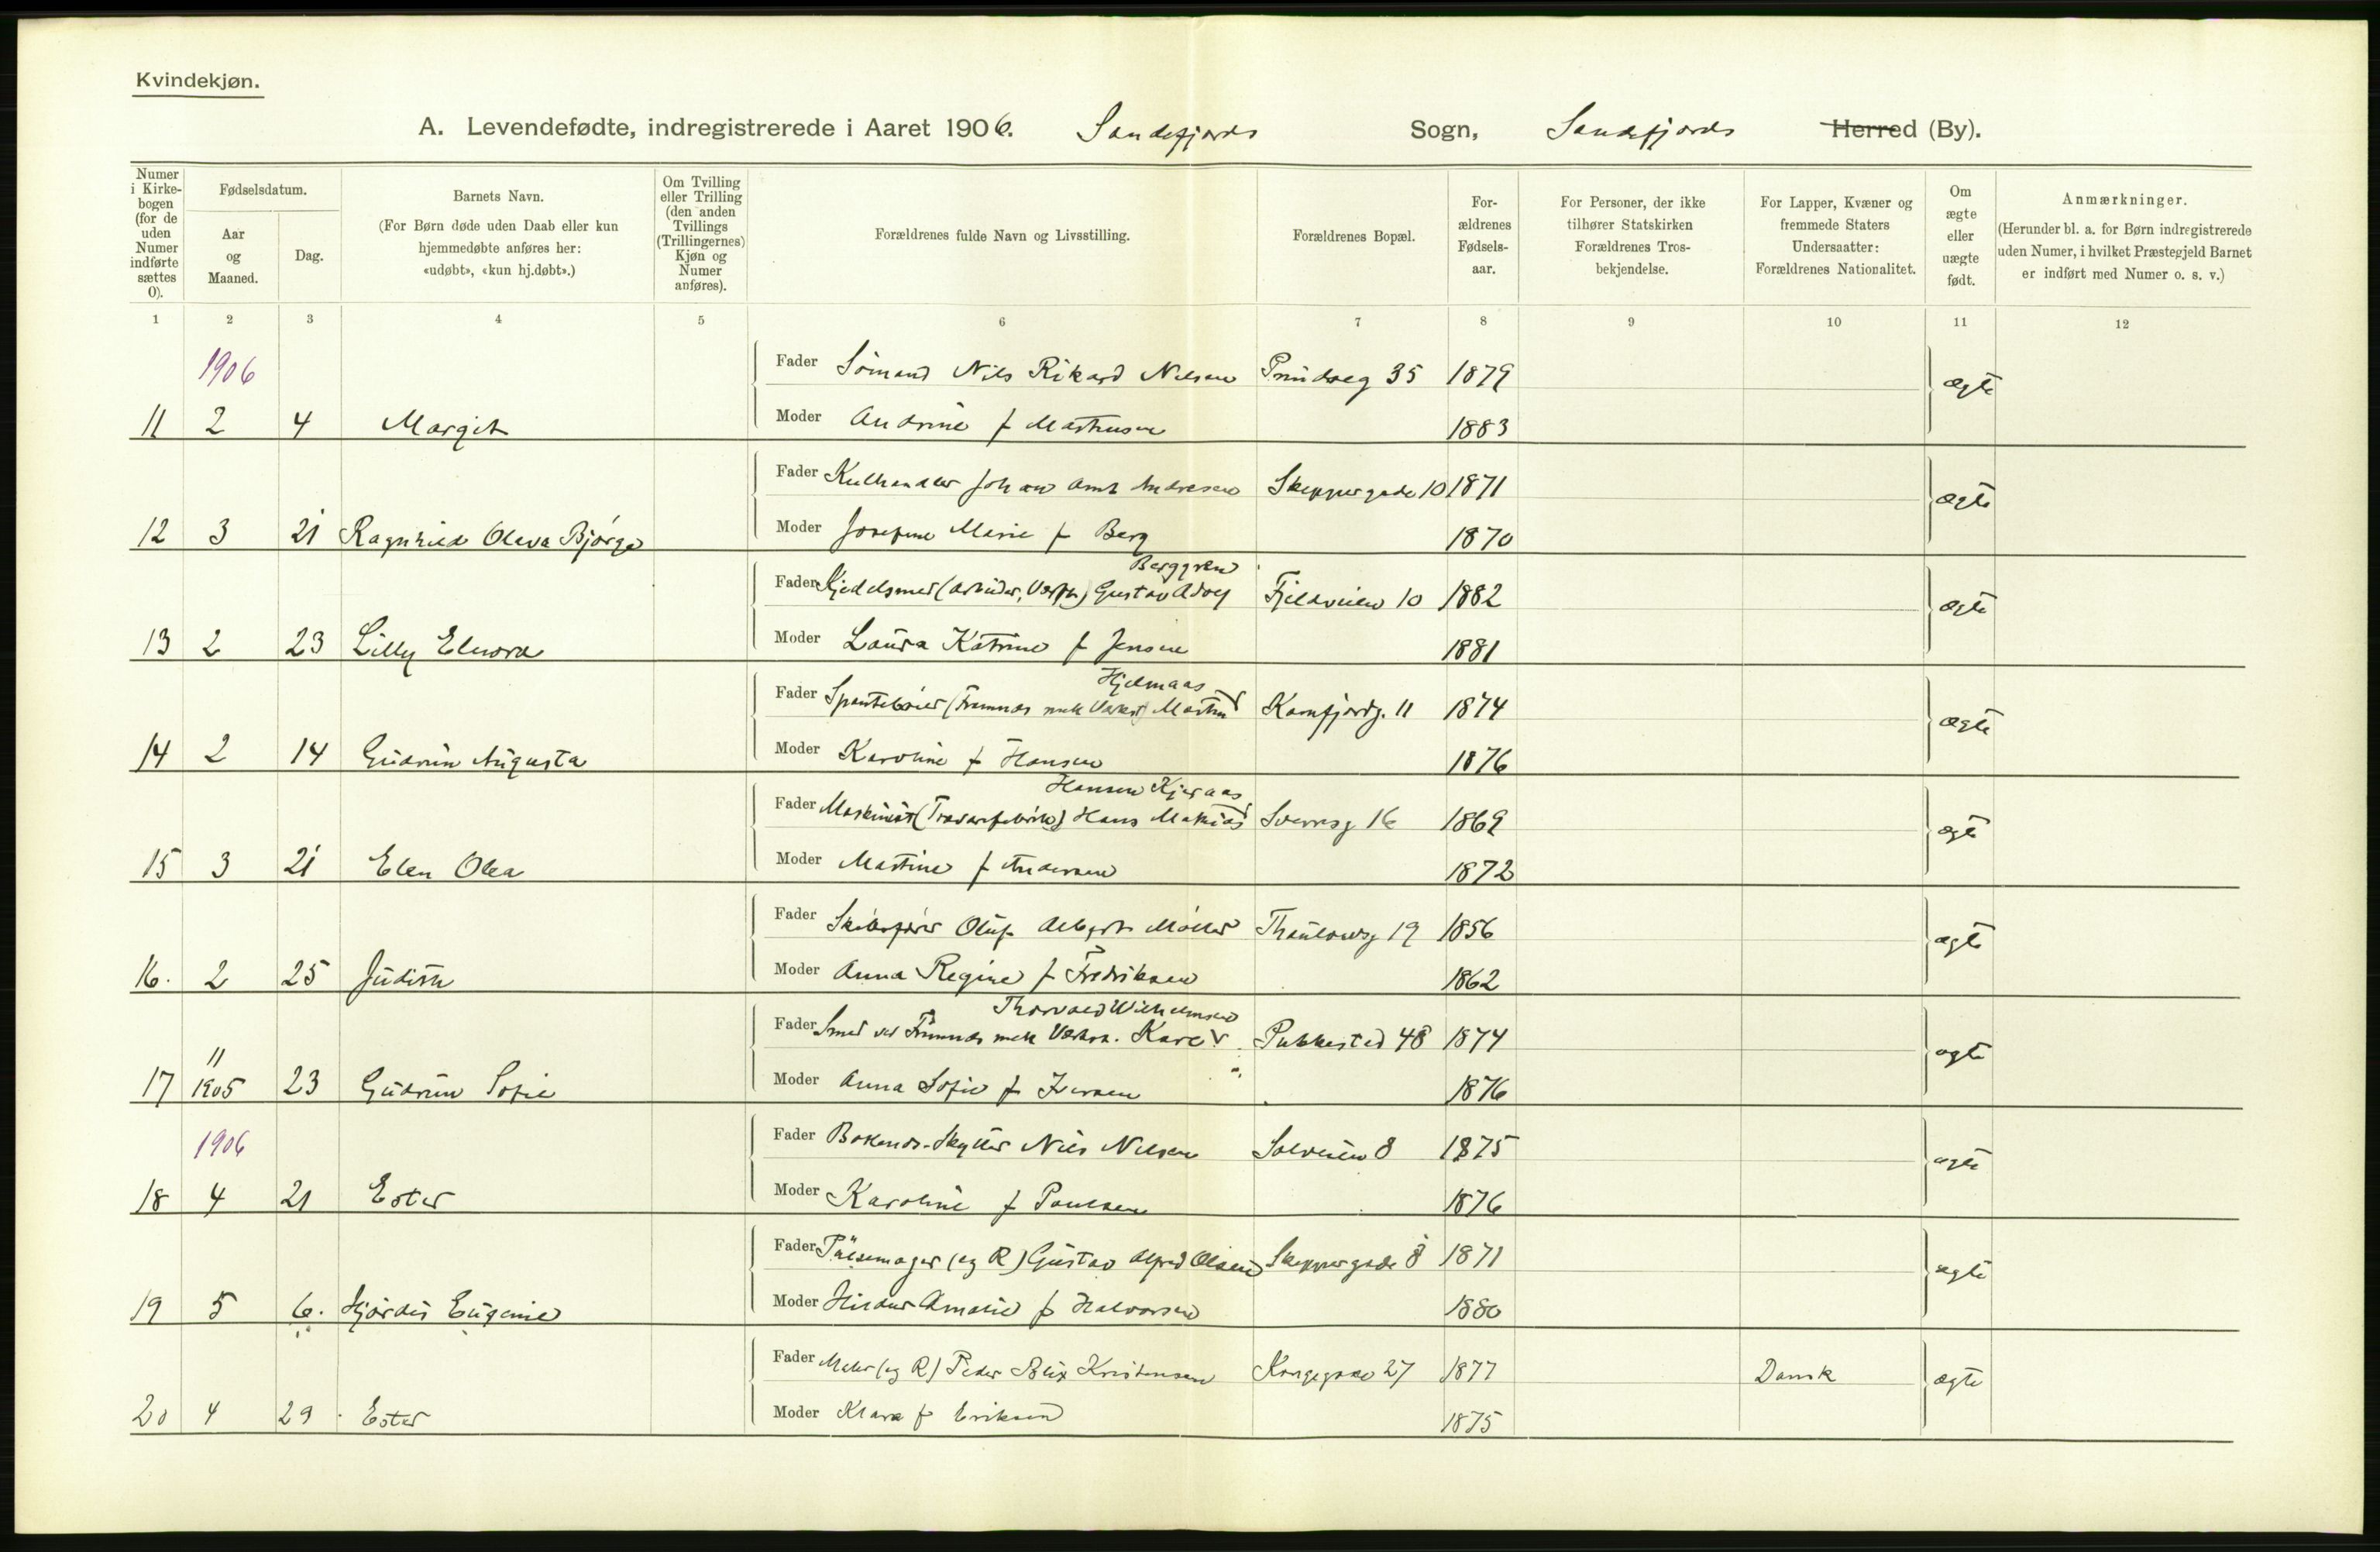 Kvindekjøn.
A. Levendefødte, indregistrerede i Aaret 1906. Sandefjords Sogn, Sandefjords Herred (By).
Numer i Kirkebogen (for de uden Numer indførte sættes 0).
Fødselsdatum.
Aar og Maaned.
Dag.
Barnets Navn.
(For Børn døde uden Daab eller kun hjemmedøbte anføres her: «udøbt», «kun hj.døbt».)
Om Tvilling eller Trilling (den anden Tvillings (Trillingernes) Kjøn og Numer anføres).
Forældrenes fulde Navn og Livsstilling.
Forældrenes Bopæl.
Forældrenes Fødselsaar.
For Personer, der ikke tilhører Statskirken Forældrenes Trosbekjendelse.
For Lapper, Kvæner og fremmede Staters Undersaatter: Forældrenes Nationalitet.
Om ægte eller uægte født.
Anmærkninger.
(Herunder bl. a. for Børn indregistrerede uden Numer, i hvilket Præstegjeld Barnet er indført med Numer o. s. v.)
1 2 3 4 5 6 7 8 9 10 11 12
1906
Fader Sömand Nils Rikard Nelsen 35 1879 ægte
11 2 4 Margit Moder Andrine f Mathusen 1883
Fader Kulhandler Johan Amt Andresen Skeppergade 10 1871 ægte
12 3 21 Ragnhild Oleva Bjørgo Moder Josefine Marie f Berg 1870
Berggren
Fader Kjedelsmed (arbeider, Værkst) Gustav Adolf Fjeldveien 10 1882 ægte
13 2 23 Lilly Elnora Moder Laura Katrine f Jensen 1881
Hjelmaas
Fader (Framnæs mek Værkst) Martin Kamfjordg. 11 1874 ægte
14 2 14 Gudrun Augusta Moder Karoline f Hansen 1876
Hansen Kjæraas
Fader Maskinist (Tranfabrik) Hans Mathias Sverresg 16 1869 ægte
15 3 21 Elen Olea Moder Martine f Andersen 1872
Fader Skibsfører Oluf Albert Møller Thaulowsg 19 1856 ægte
16. 2 25 Judith Moder Anna Regine f Fredriksen 1862
Thorvald Wilhelmsen
Fader Smed ved Framnæs mek Værkst. Karl Pukkestad 48 1874 ægte
17 11 1905 23 Gudrun Sofie Moder Anna Sofie f Iversen 1876
1906
Fader Bokenos-Skytter Nils Nilsen Solveien 8 1875 ægte
18 4 21 Ester Moder Karoline f Paulsen 1876
Fader Pølsemager (eg R) Gustav Alfred Olsen Skeppergade 8 1871 ægte
19 5 6. Hjørdis Eugenie Moder Amalie f Halvorsen 1880
Fader Maler (eg R) Peder Blix Kristensen Kongegade 27 1877 Dansk ægte
20 4 29 Ester Moder Klara f Eriksen 1875